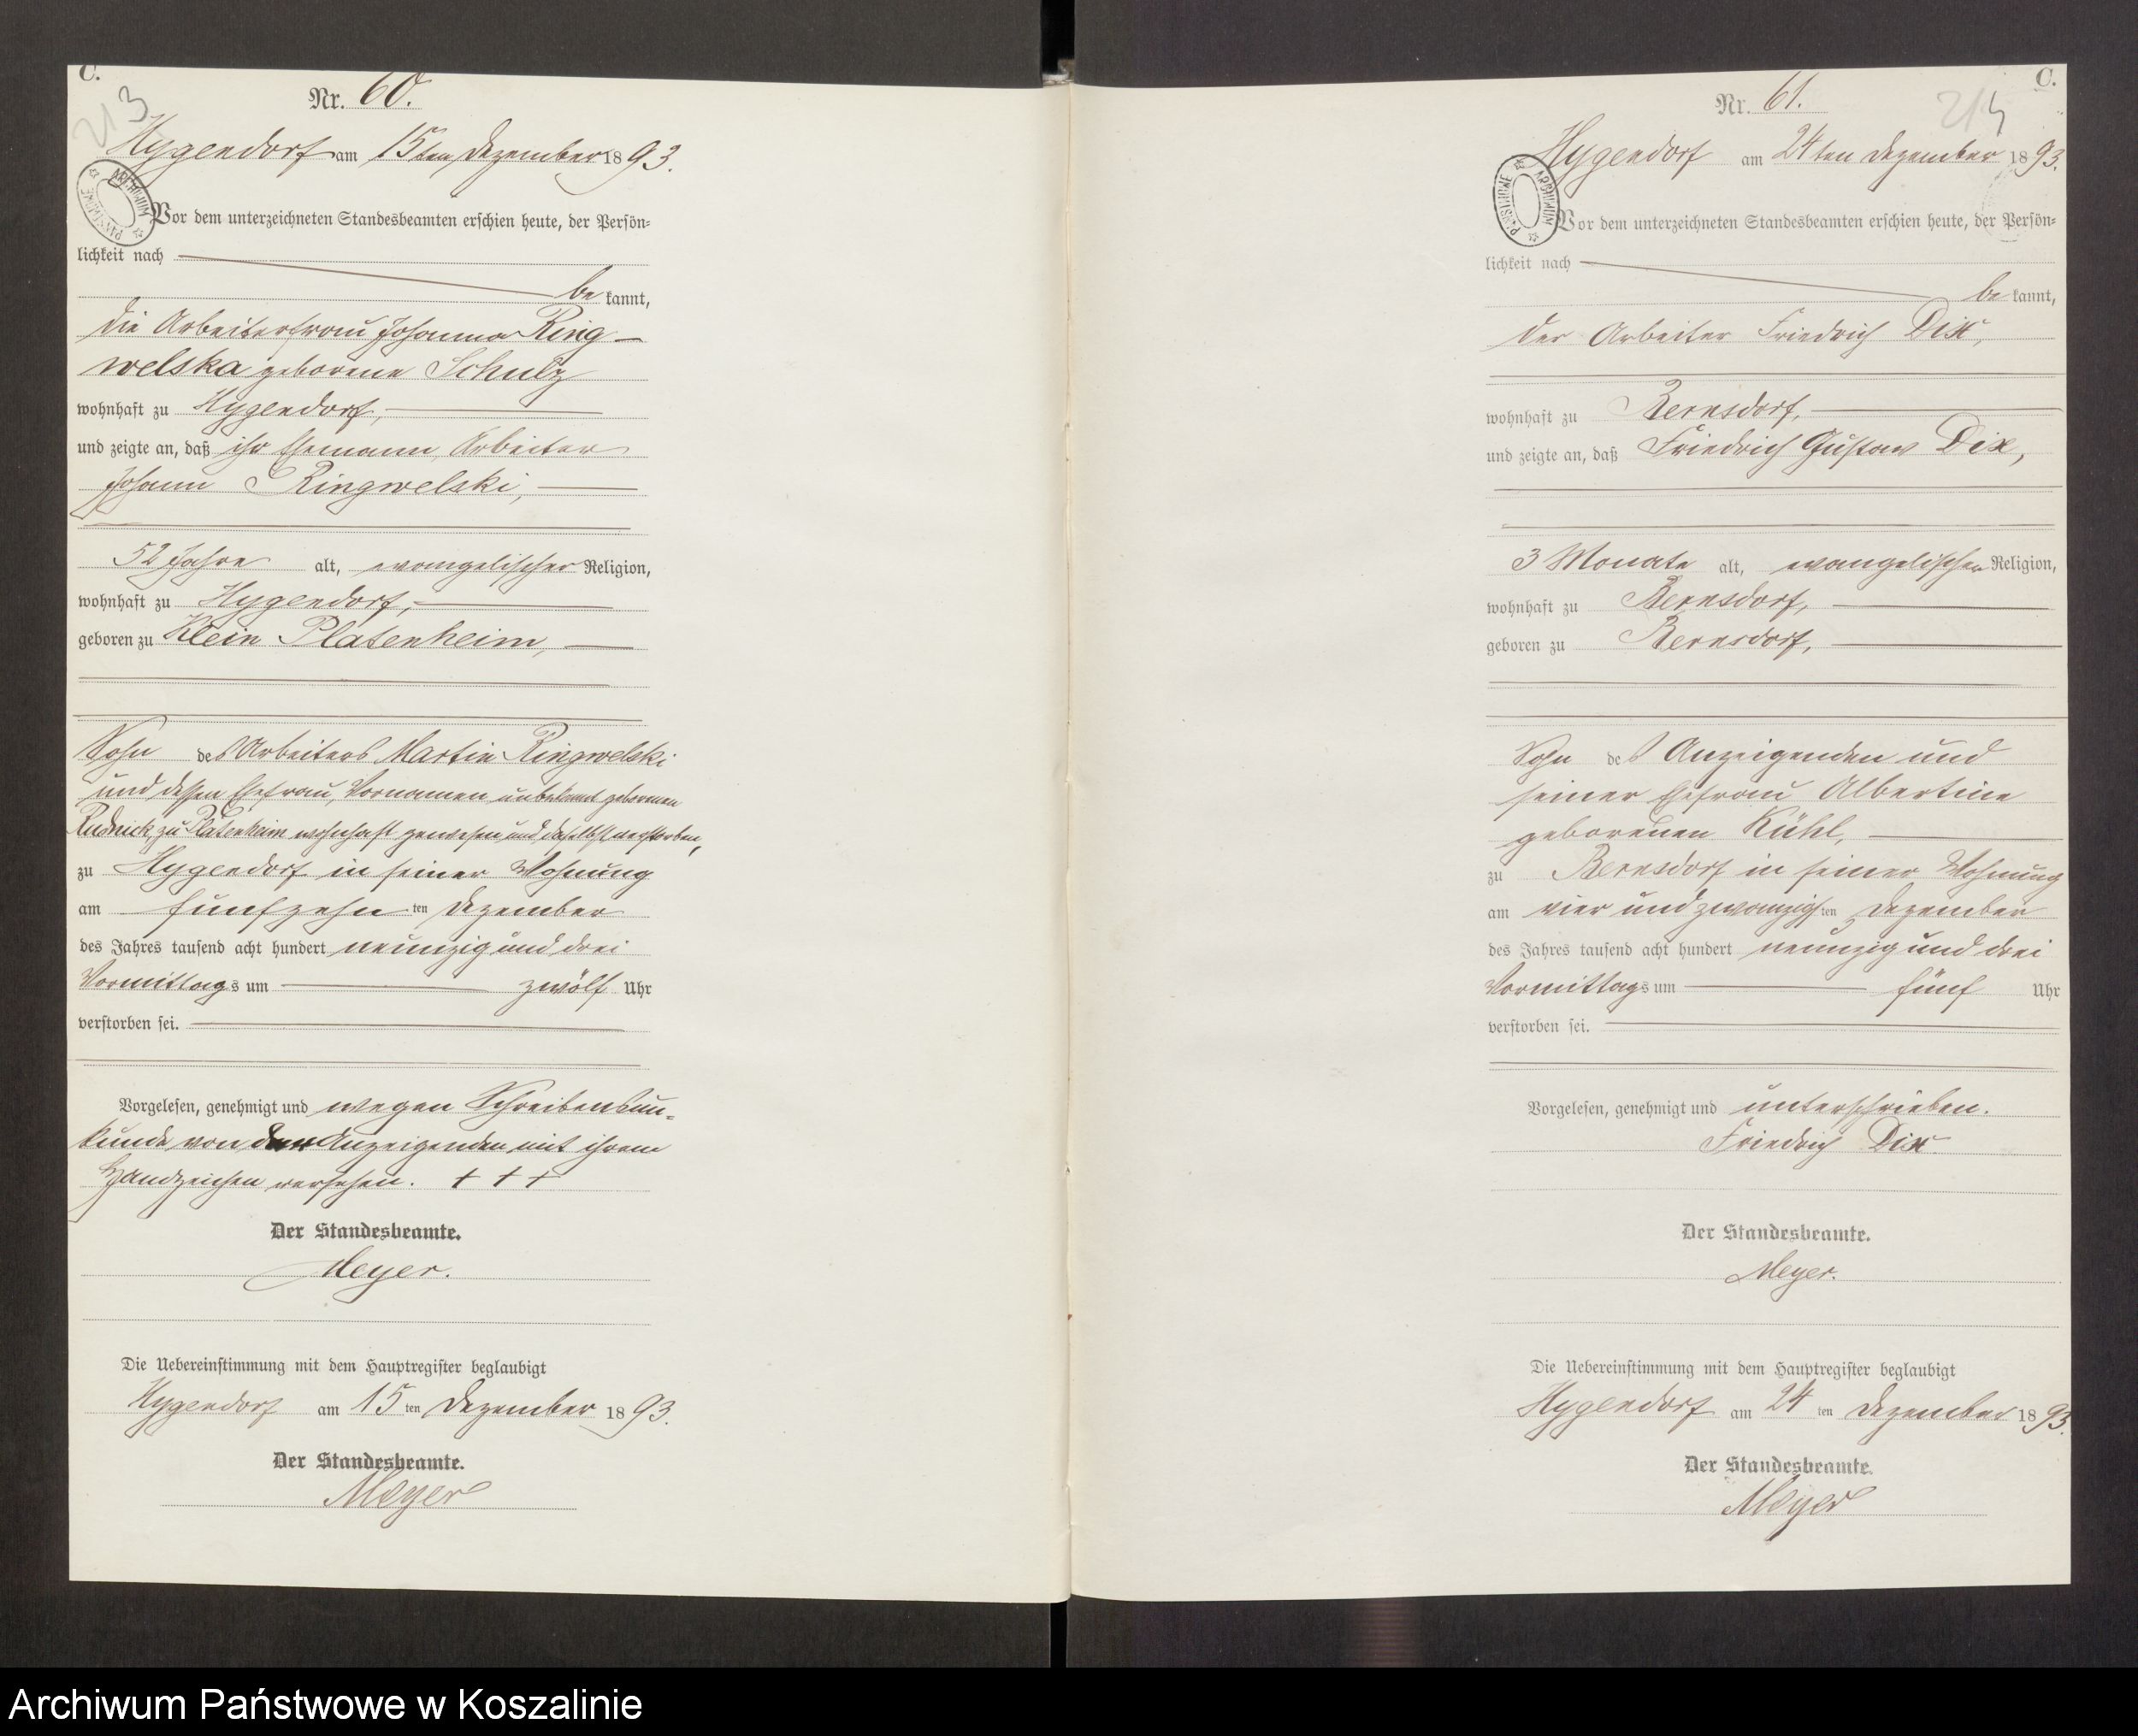 C.
213
Nr. 60.
Hygendorf am 15ten Dezember 1893.
ARCHIWUM PAŃSTWOWE
Vor dem unterzeichneten Standesbeamten erschien heute, der Persön-
lichkeit nach
bekannt,
die Arbeiterfrau Johanna Ring-
welska geborene Schulz
wohnhaft zu Hygendorf,
und zeigte an, daß ihr Ehemann, Arbeiter
Johann Ringwelski,
52 Jahre alt, evangelischer Religion,
wohnhaft zu Hygendorf,
geboren zu Klein Platenheim,
Sohn des Arbeiters Martin Ringwelski
und dessen Ehefrau, Vornamen unbekannt geborenen
Rudnick, zu Platenheim wohnhaft gewesen und daselbst verstorben,
zu Hygendorf in seiner Wohnung
am fünfzehnten Dezember
des Jahres tausend acht hundert neunzig und drei
Vormittags um zwölf Uhr
verstorben sei.
Vorgelesen, genehmigt und wegen Schreibensun-
kunde von der Anzeigenden mit ihrem
Handzeichen versehen. + + +
Der Standesbeamte.
Meyer.
Die Uebereinstimmung mit dem Hauptregister beglaubigt
Hygendorf am 15ten Dezember 1893.
Der Standesbeamte.
Meyer
C.
214
Nr. 61.
Hygendorf am 24ten Dezember 1893.
ARCHIWUM PAŃSTWOWE
Vor dem unterzeichneten Standesbeamten erschien heute, der Persön-
lichkeit nach
bekannt,
der Arbeiter Friedrich Dix,
wohnhaft zu Bernsdorf,
und zeigte an, daß Friedrich Gustav Dix,
3 Monate alt, evangelischer Religion,
wohnhaft zu Bernsdorf,
geboren zu Bernsdorf,
Sohn des Anzeigenden und
seiner Ehefrau Albertine
geborenen Kühl,
zu Bernsdorf in seiner Wohnung
am vier und zwanzigsten Dezember
des Jahres tausend acht hundert neunzig und drei
Vormittags um fünf Uhr
verstorben sei.
Vorgelesen, genehmigt und unterschrieben.
Friedrich Dix
Der Standesbeamte.
Meyer.
Die Uebereinstimmung mit dem Hauptregister beglaubigt
Hygendorf am 24ten Dezember 1893.
Der Standesbeamte.
Meyer
Archiwum Państwowe w Koszalinie